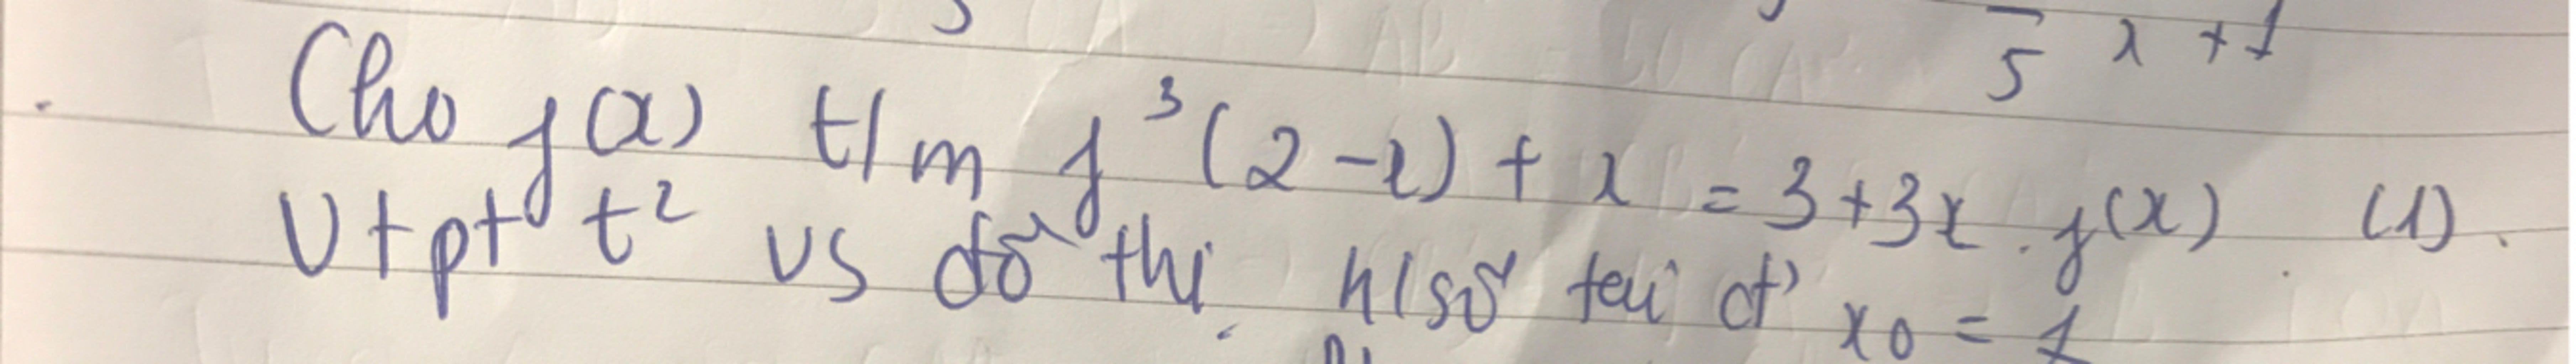 5 x + 1
Cho f(x) t/m f³(2-x) + x = 3+3x.f(x) (1).
Vtpt t² vs đồ thị h/số tại đ' x0 = 1